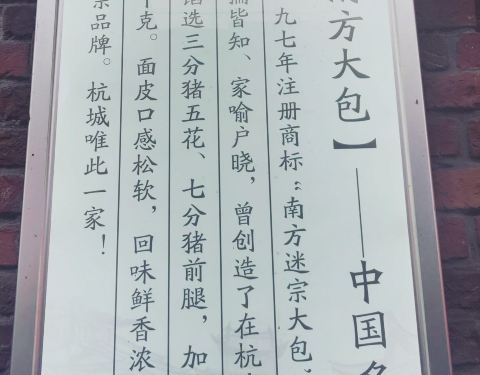 南方大包】——中国
九七年注册商标“南方迷宗大包
皆知、家喻户晓，曾创造了在杭
选三分猪五花、七分猪前腿，加
克。面皮口感松软，回味鲜香浓
品牌。杭城唯此一家！